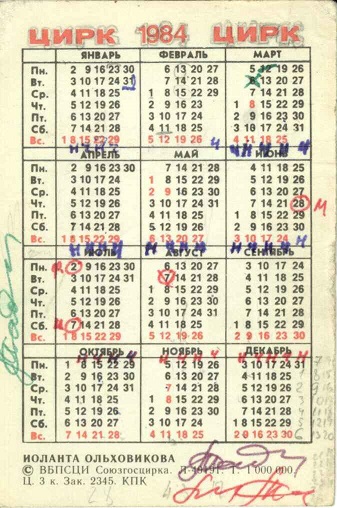 ЦИРК 1984 ЦИРК
ЯНВАРЬ ФЕВРАЛЬ МАРТ
Пн. 2 9 16 23 30 6 13 20 27 5 12 19 26
Вт. 3 10 17 24 31 7 14 21 28 6 13 20 27
Ср. 4 11 18 25 1 8 15 22 29 7 14 21 28
Чт. 5 12 19 26 2 9 16 23 1 8 15 22 29
Пт. 6 13 20 27 3 10 17 24 2 9 16 23 30
Сб. 7 14 21 28 4 11 18 25 3 10 17 24 31
Вс. 1 8 15 22 29 5 12 19 26 4 11 18 25
АПРЕЛЬ МАЙ ИЮНЬ
Пн. 2 9 16 23 30 7 14 21 28 4 11 18 25
Вт. 3 10 17 24 1 8 15 22 29 5 12 19 26
Ср. 4 11 18 25 2 9 16 23 30 6 13 20 27
Чт. 5 12 19 26 3 10 17 24 31 7 14 21 28 м
Пт. 6 13 20 27 4 11 18 25 1 8 15 22 29
Сб. 7 14 21 28 5 12 19 26 2 9 16 23 30
Вс. 1 8 15 22 29 6 13 20 27 3 10 17 24
ИЮЛЬ АВГУСТ СЕНТЯБРЬ
Пн. 2 9 16 23 30 6 13 20 27 3 10 17 24
Вт. 3 10 17 24 31 7 14 21 28 4 11 18 25
Ср. 4 11 18 25 1 8 15 22 29 5 12 19 26
Чт. 5 12 19 26 2 9 16 23 30 6 13 20 27
Пт. 6 13 20 27 3 10 17 24 31 7 14 21 28
Сб. 7 14 21 28 4 11 18 25 1 8 15 22 29
Вс. 1 8 15 22 29 5 12 19 26 2 9 16 23 30
ОКТЯБРЬ НОЯБРЬ ДЕКАБРЬ
Пн. 1 8 15 22 29 5 12 19 26 3 10 17 24 31
Вт. 2 9 16 23 30 6 13 20 27 4 11 18 25
Ср. 3 10 17 24 31 7 14 21 28 5 12 19 26
Чт. 4 11 18 25 1 8 15 22 29 6 13 20 27
Пт. 5 12 19 26 2 9 16 23 30 7 14 21 28
Сб. 6 13 20 27 3 10 17 24 1 8 15 22 29
Вс. 7 14 21 28 4 11 18 25 2 9 16 23 30
ИОЛАНТА ОЛЬХОВИКОВА
© ВБПСЦИ Союзгосцирка. Л-49191. Т. 1 000 000.
Ц. 3 к. Зак. 2345. КПК